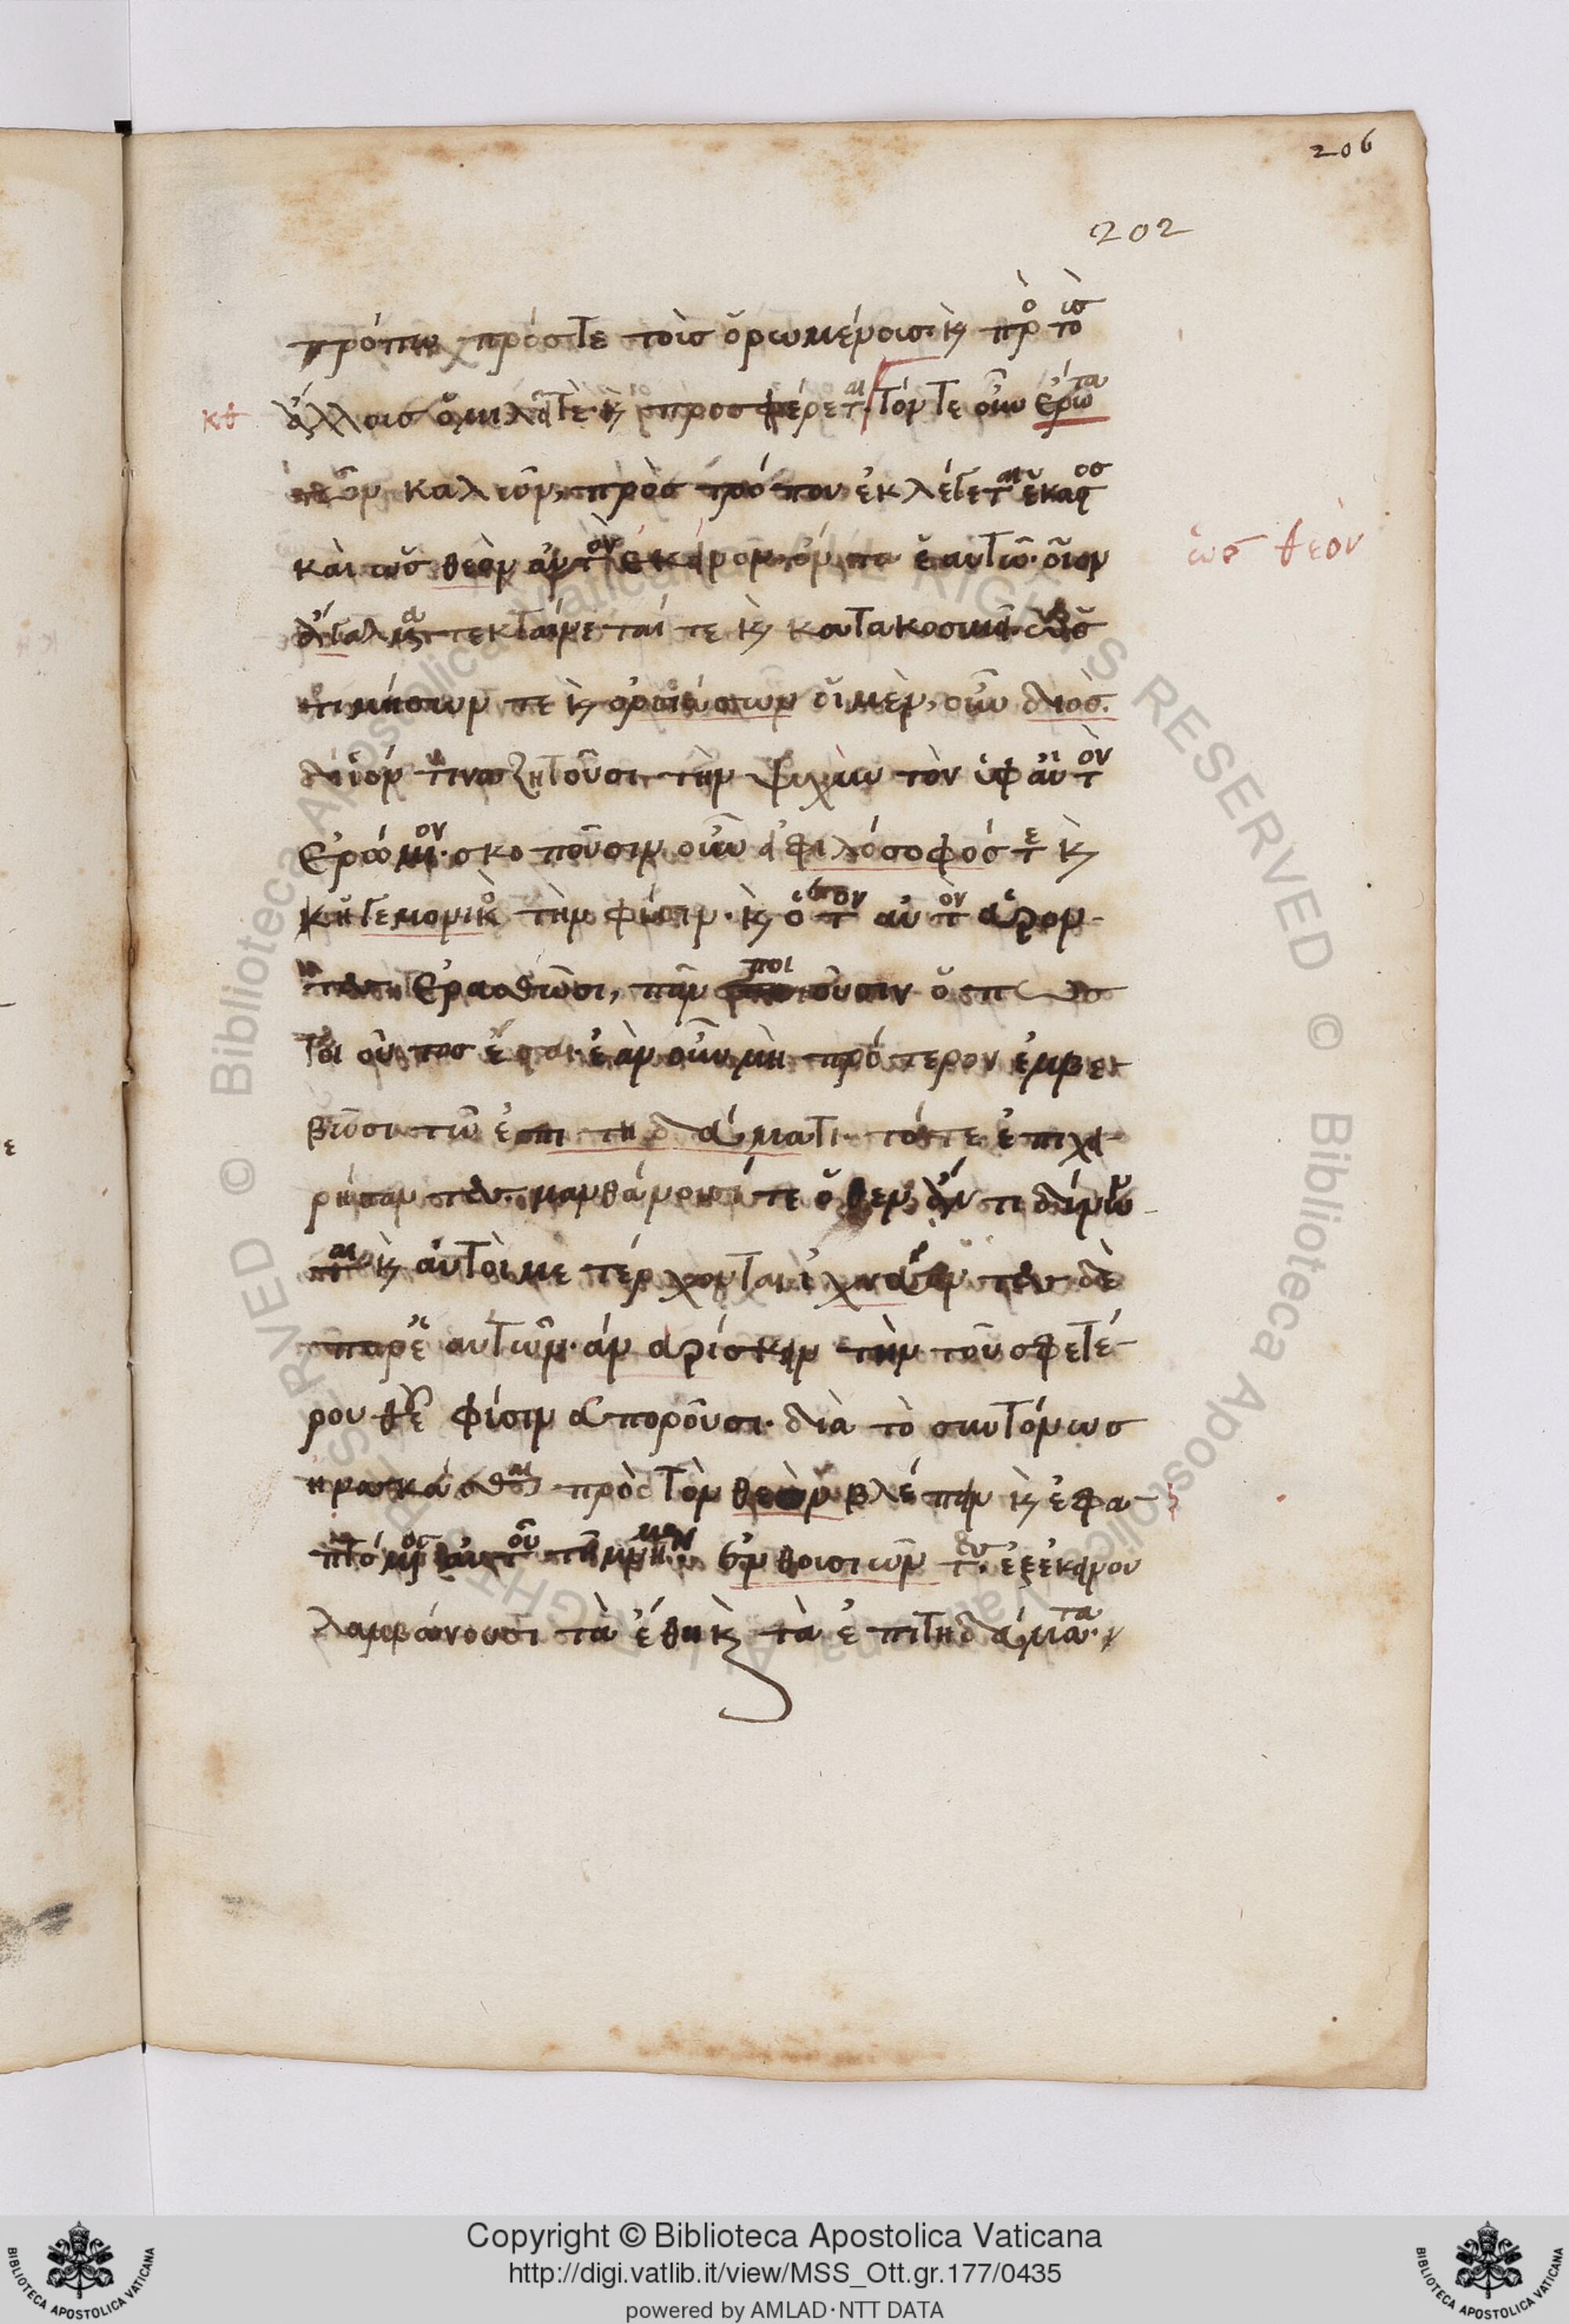 206
202
τρόπω πρόστε τοὶσ ὁρωμένοισι κ πρὸ τοῖσ
κθ ἄλλοισ ὁμιλεῖτε· κ προσφέρεται· τόν τε οὖν ἔρωτα
τῶν καλῶν, πρὸσ τρόπου ἐκλέγεται ἕκαστοσ
καὶ ὡσ θεὸν αὐτὸν ἐκεῖνον ὄντα ἑαυτῶ· οἷον
ὡσ θεόν
ἄγαλμα τεκταίνεταί τε κ κατακοσμεῖ· ὡσ
τιμήσων τε κ ὀργιάσων οἱ μὲν, οὖν διὸσ·
δίϊόν τινα ζητοῦσι τὴν ψυχὴν τὸν ὑφ αὑτ ὸν
ἐρώμενον· σκοποῦσιν οὖν εἰ φιλόσοφόσ τε κ
ἡγεμονικὸ τὴν φύσιν· κ ὅταν αὐτὸν εὑρόν-
τεσ ἐρασθῶσι, πᾶν ποιοῦσιν ὅπωσ
τοιοῦτοσ ἔσται· ἐὰν οὖν μὴ πρότερον ἐμβε
βῶσι τῶ ἐπιτηδεύματι· τότε ἐπιχει
ρήσαντεσ· μανθάνουσί τε ὅθεν ἄν τι δύνω-
ται κ αὐτοὶ μετέρχονται ἰχνεύοντεσ δὲ
παρ ἑαυτῶν· ἀνευρίσκειν τὴν τοῦ σφετέ-
ρου θεοῦ φύσιν εὐποροῦσι· διὰ τὸ συντόνωσ
ἠναγκάσθαι πρὸσ τὸν θεὸν βλέπειν κ ἐφα-
πτόμενοι αὐτοῦ τῆ μνήμη ἐνθουσιῶντεσ. ἐξ ἐκείνου
λαμβάνουσι τὰ ἔθη κ τὰ ἐπιτηδεύματα·
Copyright © Biblioteca Apostolica Vaticana
http://digi.vatlib.it/view/MSS_Ott.gr.177/0435
powered by AMLAD·NTT DATA
BIBLIOTECA APOSTOLICA VATICANA
BIBLIOTECA APOSTOLICA VATICANA